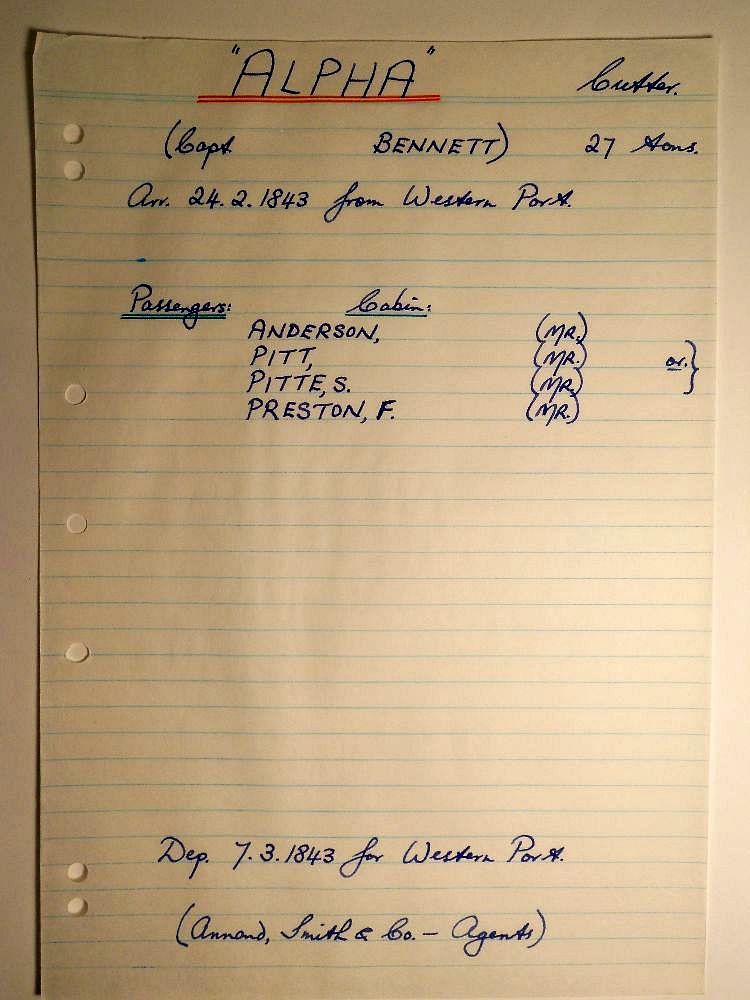 "ALPHA" Cutter.
(Capt BENNETT) 27 tons.
Arr. 24.2.1843 from Western Port.
Passengers: Cabin:
ANDERSON, (MR.)
PITT, (MR.) or. }
PITTE, S. (MR.)
PRESTON, F. (MR.)
Dep. 7.3.1843 for Western Port.
(Annand, Smith & Co. – Agents)